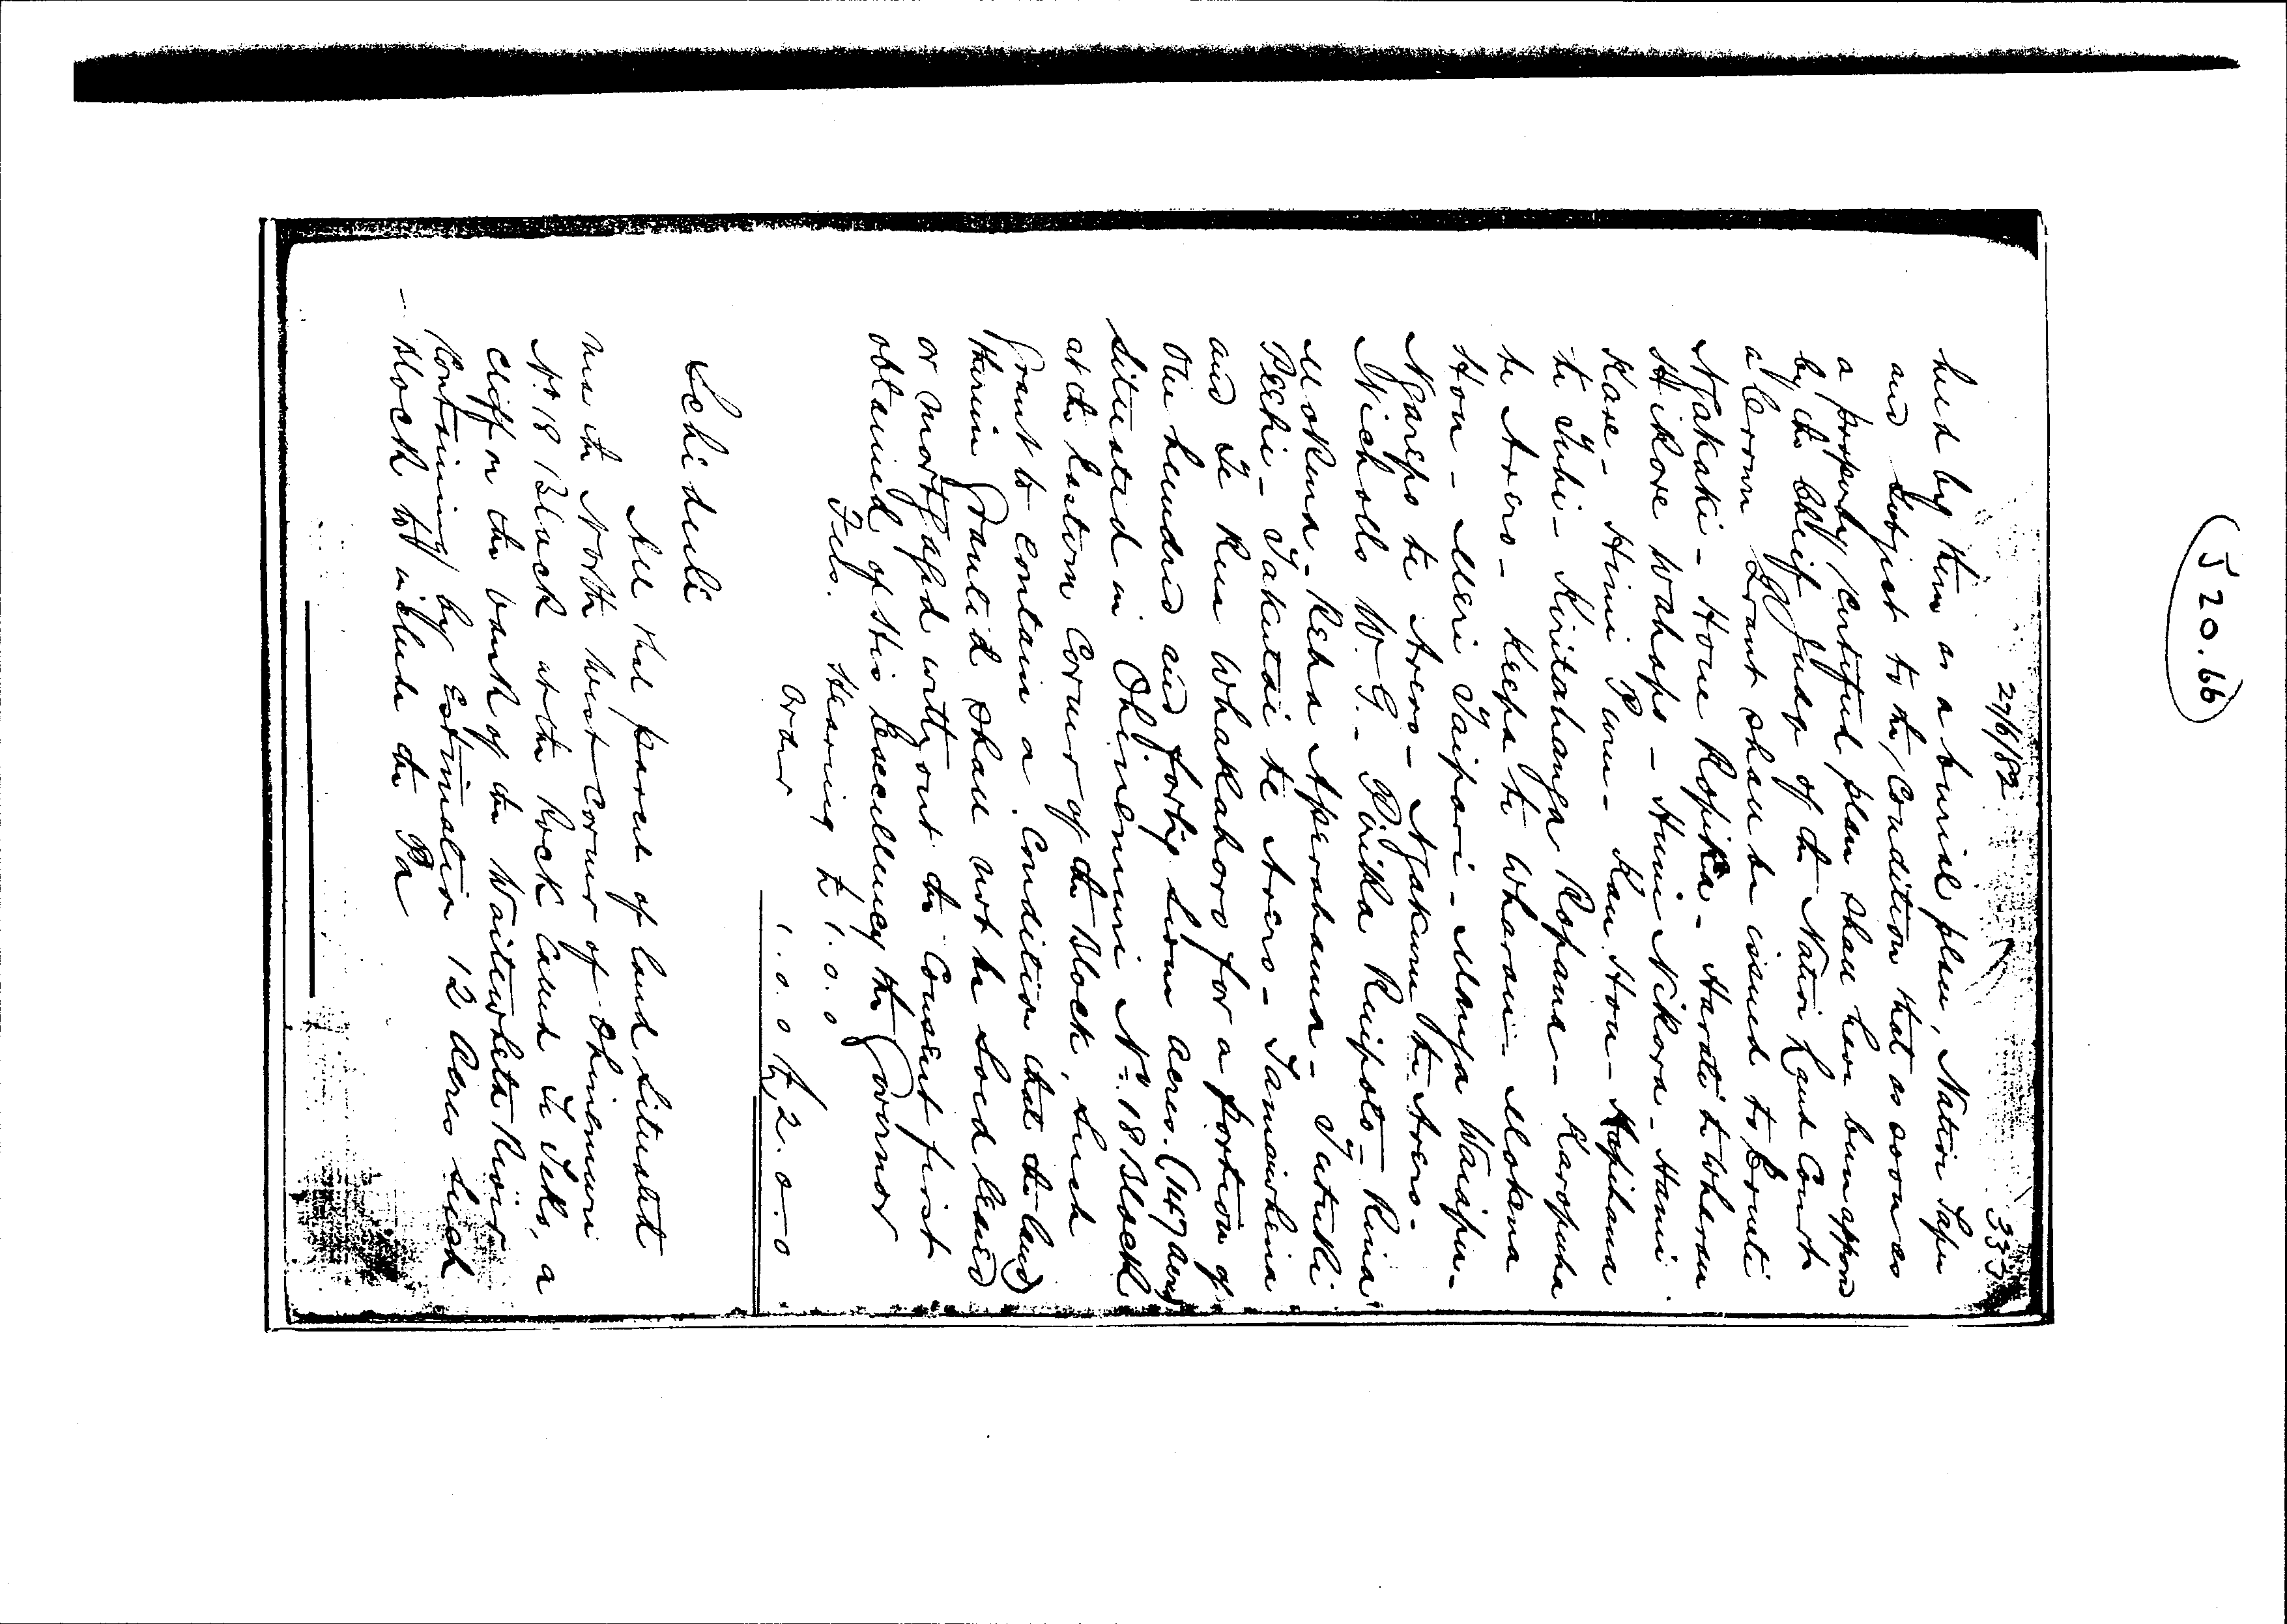 J 20.66
27/6/82 333
held by them as a burial place, Native Tapu
and subject to the Condition that as soon as
a properly Certified plan shall have been approved
by the Chief Judge of the Native Land Court
a Crown Grant shall be issued to
Ngakaki - Hone Ropiha - Harati te Wharau
Hikore Wahapo - Huni Nikora - Hami
Kare - Himi - Kau Hou - Hapihana
te Tuhi - Kiritahanga Ropana - Karopuha
te Arero - Keepa te Wharau - Mokena
Hou - Meri Taipari - Manga Waiapu -
Ngarepo te Arero - Ngakuru te Arero -
Nicholls W. G. - Piniha Ruipoto - Rina
Mokena - Reha Aperahama - Tutuki
Peehi - Takutai te Arero - Tamaiwhena
and Te Rua Whakahoro for a portion of
One hundred and forty seven acres. (147 acres)
situated in Ohinemuri No. 18 Block
at the Eastern Corner of the Block, such
Grant to contain a Condition that the land
therein Granted shall not be Sold leased
or mortgaged without the Consent first
obtained of His Excellency the Governor
Fees. Hearing £ 1. 0. 0
Order 1. 0. 0 £ 2. 0. 0
Schedule
All that parcel of land situated
near the North West Corner of Ohinemuri
No. 18 Block at the Rock Called Te Teko, a
cliff on the bank of the Waitewheta River
Containing by Estimation 12 Acres such
Block to include the Pa